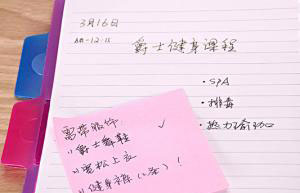 3月16日
AM-12:15
爵士健身课程
· SPA
· 排毒
· 热力瑜珈
需带服饰
爵士舞鞋
宽松上衣
健身裤(长)!